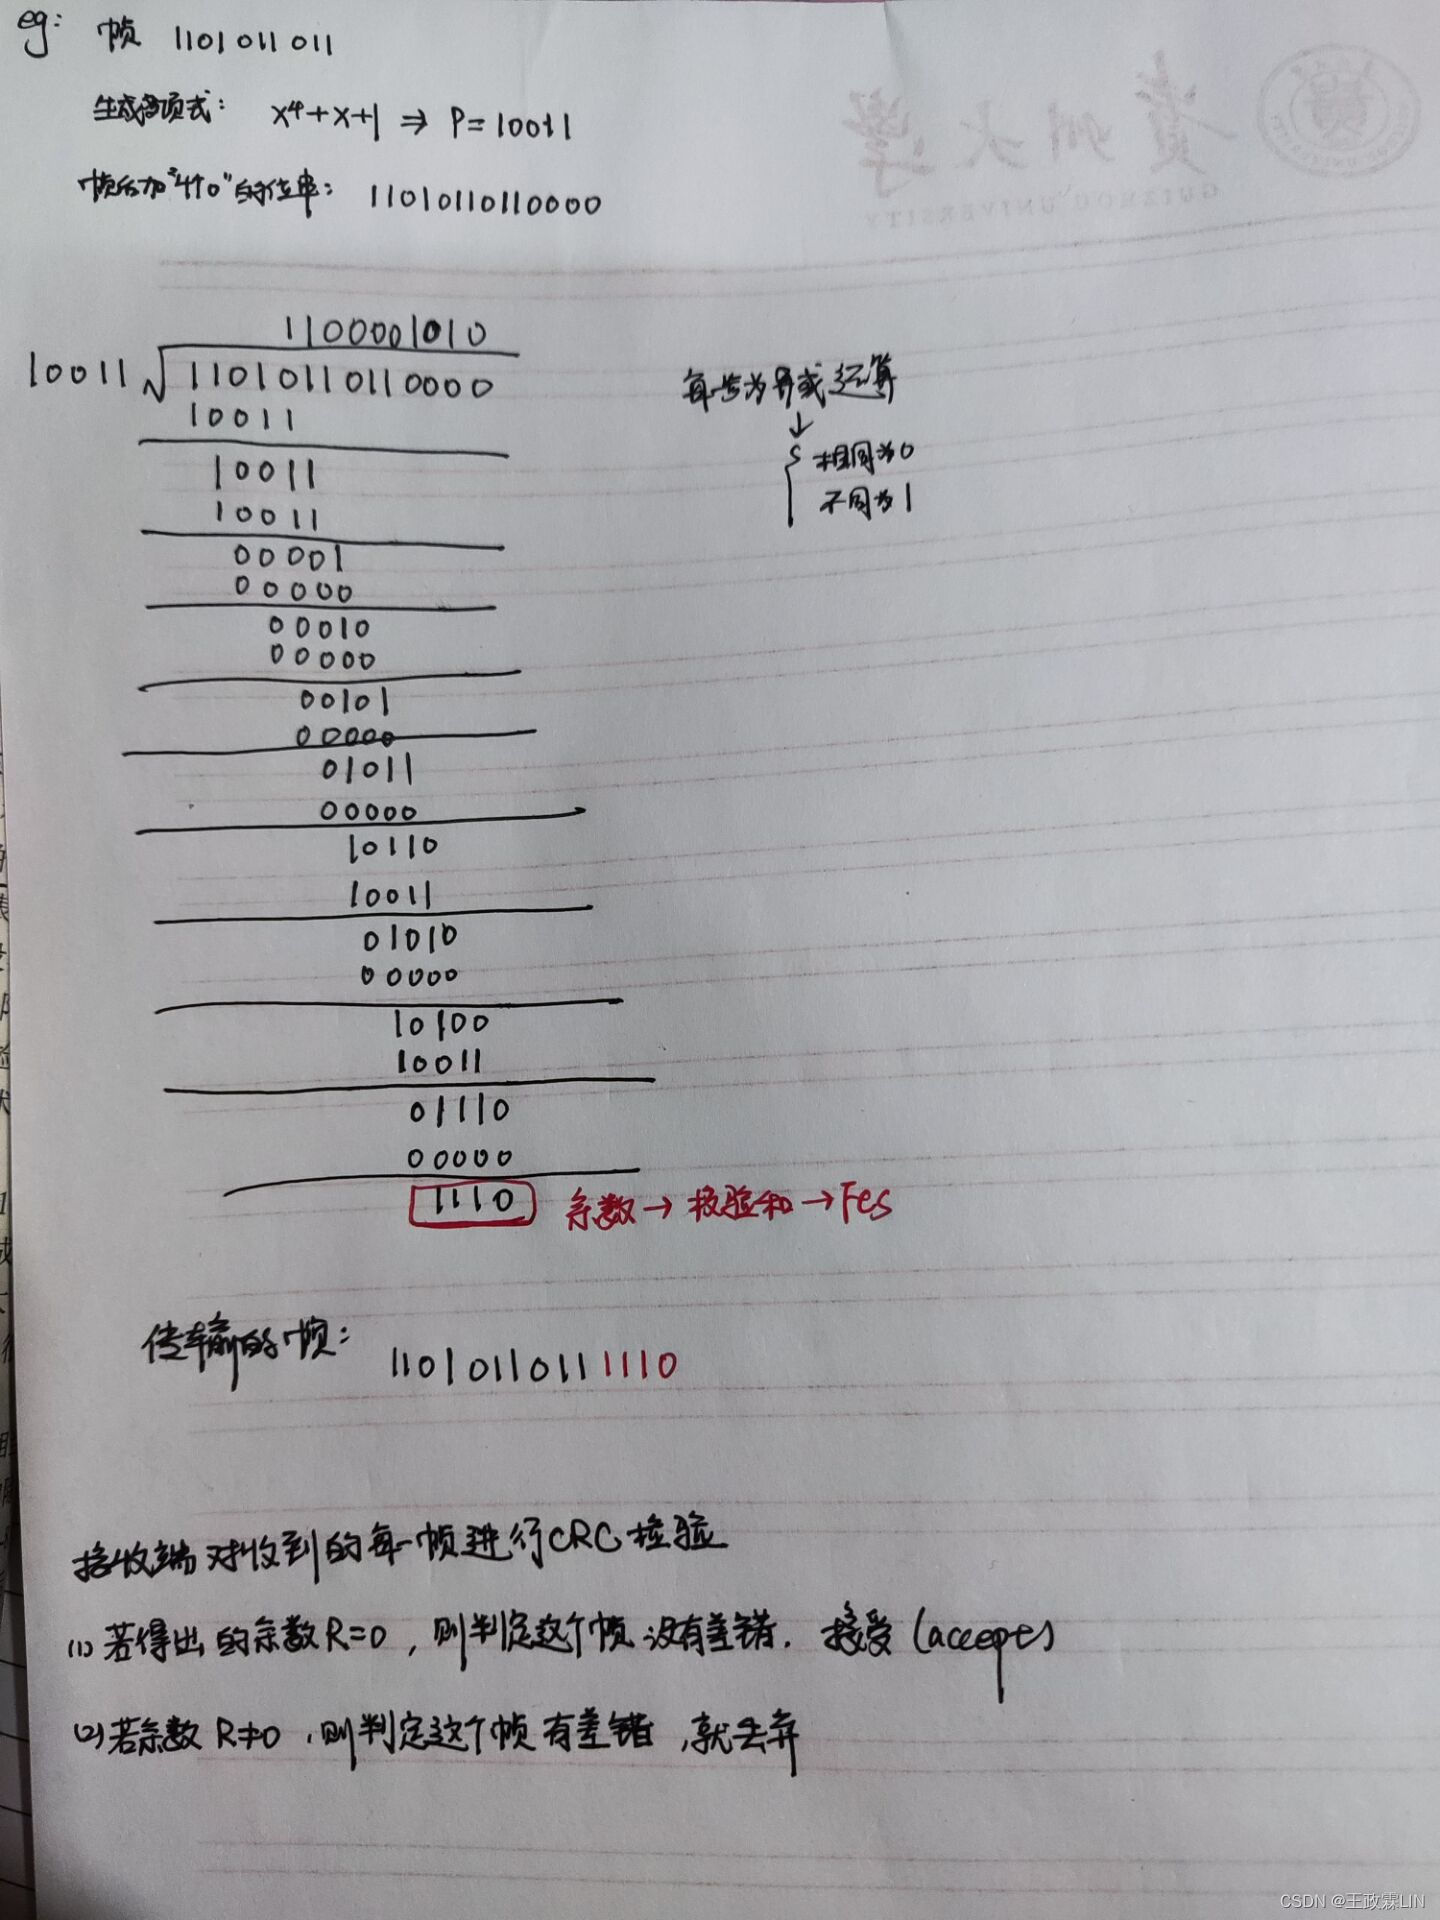 eg: 帧 1101011011
生成多项式: x⁴+x+1 ⇒ P=10011
帧后加"4个0"的位串: 11010110110000
1100001010
10011 √11010110110000
10011
每一步为异或运算
↓
相同为0
不同为1
10011
10011
00001
00000
00010
00000
00101
00000
01011
00000
10110
10011
01010
00000
10100
10011
01110
00000
1110 余数→校验和→Fcs
传输的帧: 11010110111110
接收端对收到的每一帧进行CRC检验
(1) 若得出的余数R=0, 则判定这个帧没有差错. 接受 (accept)
(2) 若余数 R≠0, 则判定这个帧有差错, 就丢弃
贵州大学
GUIZHOU UNIVERSITY
CSDN @王政霖LIN